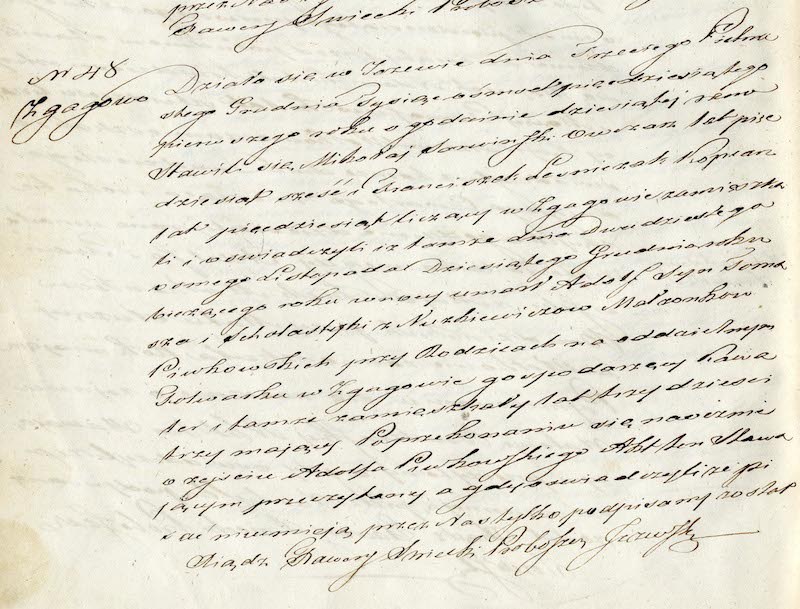 Xawery Smiecki Probosz
N 48
Zgagowo
Działo się w Jeżewie dnia Trzeciego Piętna
stego Grudnia Tysiąc ośmset pięćdziesiątego
pierwszego roku o godzinie dziesiątej
Stawili się Mikołaj Owczarz lat pięć
dziesiąt sześć i Franciszek Leśniczak
lat pięćdziesiąt liczący w Zgagowie zamieszka
li i oświadczyli iż tamże dnia Dwudziestego
Listopada Dziesiątego Grudnia roku
bieżącego roku w nocy umarł Adolf Syn Toma
sza i Scholastyki z Małżonków
Piwkowskich przy Rodzicach na oddzielnym
Folwarku w Zgagowie gospodarzący Kawa
ler i tamże zamieszkały lat trzydzieści
trzy mający Po przekonaniu się naocznie
o zejściu Adolfa Piwkowskiego Akt ten Stawa
jącym przeczytany a gdy oświadczyli że pi
sać nieumieją przez Nas tylko podpisany został
Xiądz Xawery Smiecki Proboszcz Jeżewski